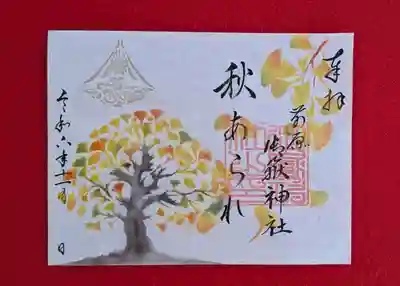 奉拝
前原
御嶽神社
秋あられ
令和六年十一月 日